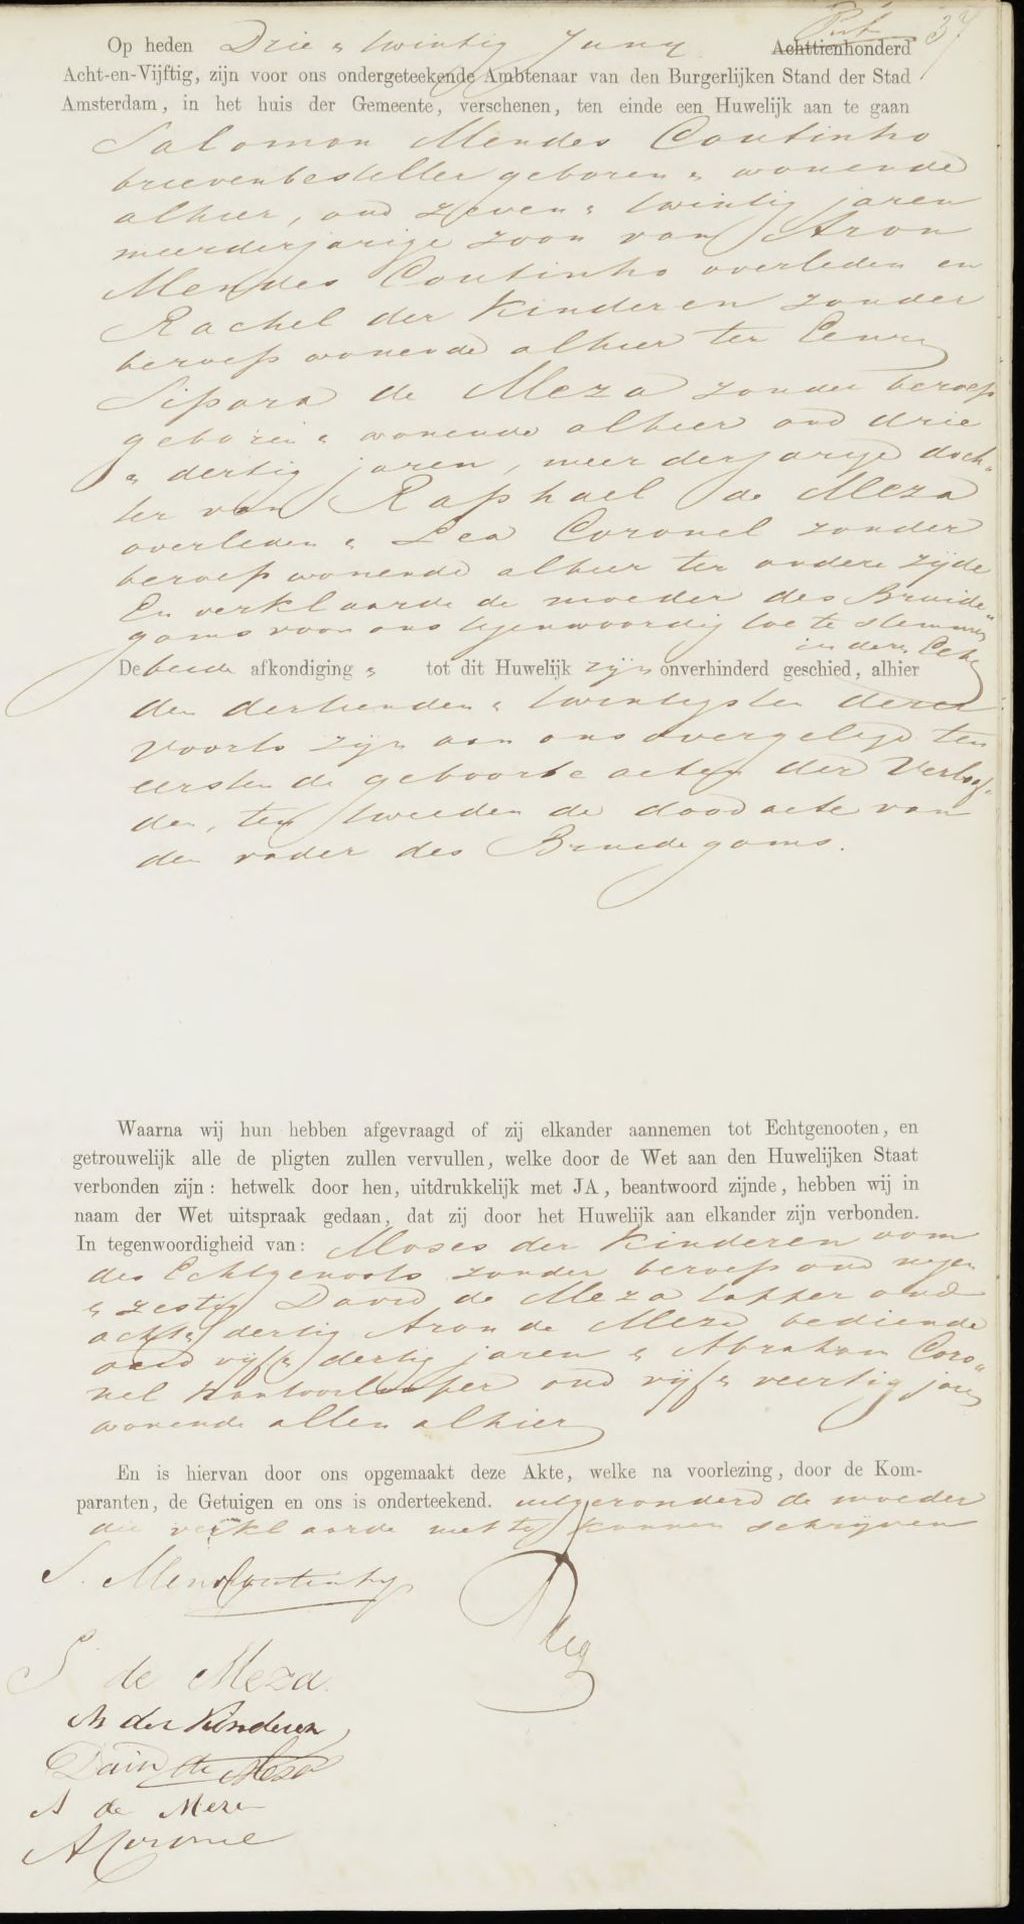 37
Op heden Drie " twintig Juny Achttienhonderd
Acht-en-Vijftig, zijn voor ons ondergeteekende Ambtenaar van den Burgerlijken Stand der Stad
Amsterdam, in het huis der Gemeente, verschenen, ten einde een Huwelijk aan te gaan
Salomon Mendes Coutinho
brievenbesteller geboren " wonende
alhier, oud zeven " twintig jaren
meerderjarige zoon van Aron
Mendes Coutinho overleden en
Rachel der Kinderen zonder
beroep wonende alhier ter Eenre
Sipora de Meza zonder beroep
geboren " wonende alhier oud drie
" dertig jaren, meerderjarige doch"
ter van Raphael de Meza
overleden " Lea Coronel zonder
beroep wonende alhier ter andere zijde
En verklaarde de moeder des Bruide"
goms voor ons tegenwoordig toe te stemmen
in deze Echt
De beide afkondiging " tot dit Huwelijk zijn onverhinderd geschied, alhier
den dertienden " twintigsten dezer
Voorts zijn aan ons overgelegd ten
eersten de geboorte acten der Verloof"
den, ten tweeden de dood acte van
den vader des Bruidegoms.
Waarna wij hun hebben afgevraagd of zij elkander aannemen tot Echtgenooten, en
getrouwelijk alle de pligten zullen vervullen, welke door de Wet aan den Huwelijken Staat
verbonden zijn: hetwelk door hen, uitdrukkelijk met JA, beantwoord zijnde, hebben wij in
naam der Wet uitspraak gedaan, dat zij door het Huwelijk aan elkander zijn verbonden.
In tegenwoordigheid van: Moses der Kinderen oom
des Echtgenoots zonder beroep oud negen
" zestig David de Meza tapper oud
acht " dertig Aron de Meza bediende
oud vijf " dertig jaren " Abraham Coro"
nel Kantoorlooper oud vijf " veertig jaren
wonende allen alhier
En is hiervan door ons opgemaakt deze Akte, welke na voorlezing, door de Kom-
paranten, de Getuigen en ons is onderteekend. uitgezonderd de moeder
die verklaarde niet te kunnen schrijven
S. Mendes Coutinho
S de Meza
M der Kinderen
David de Meza
A de Meza
A Coronel